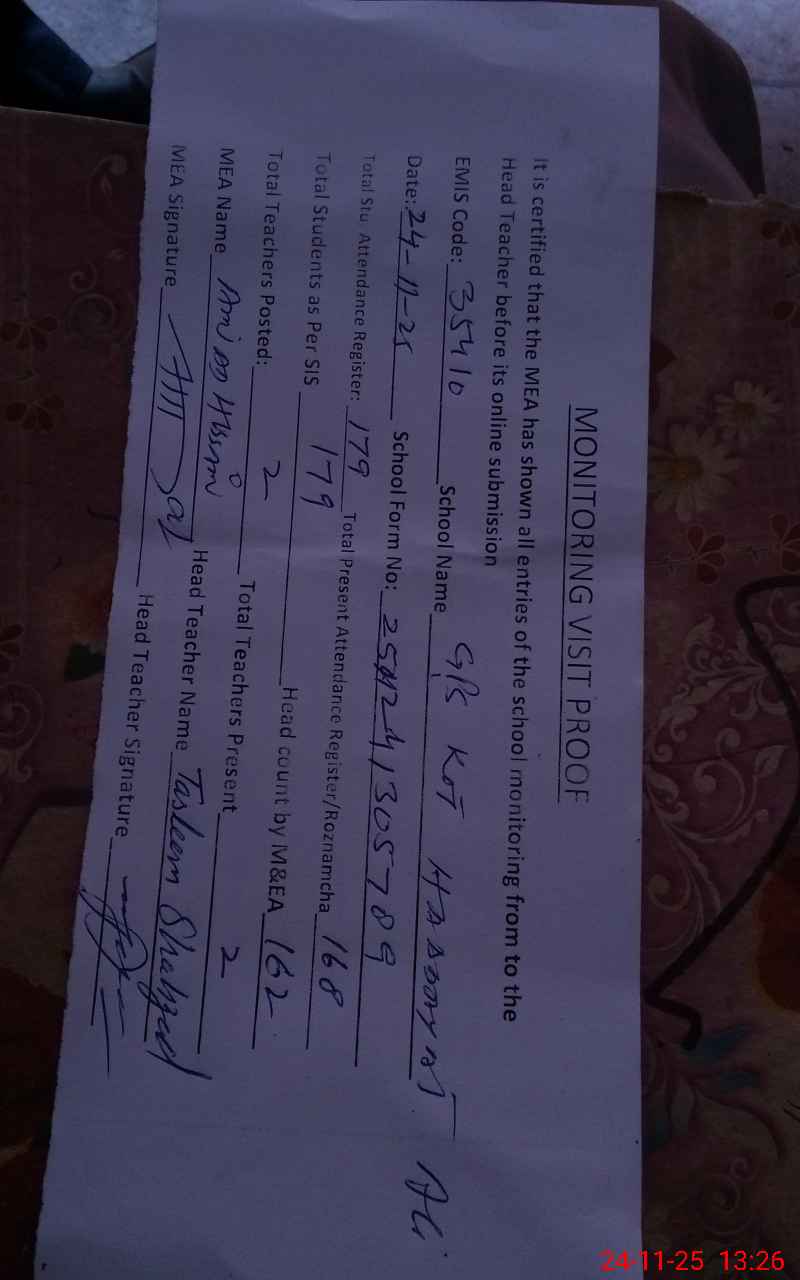 MONITORING VISIT PROOF
It is certified that the MEA has shown all entries of the school monitoring from to the
Head Teacher before its online submission
EMIS Code: 35410 School Name GPS KOT HASSAYAT Ali
Date: 24-11-25 School Form No: 2511241305789
Total Stu Attendance Register: 179 Total Present Attendance Register/Roznamcha 168
Total Students as Per SIS 179 Head count by M&EA 162
Total Teachers Posted: 2 Total Teachers Present 2
MEA Name Head Teacher Name Tasleem Shahzad
MEA Signature Head Teacher Signature
24-11-25 13:26